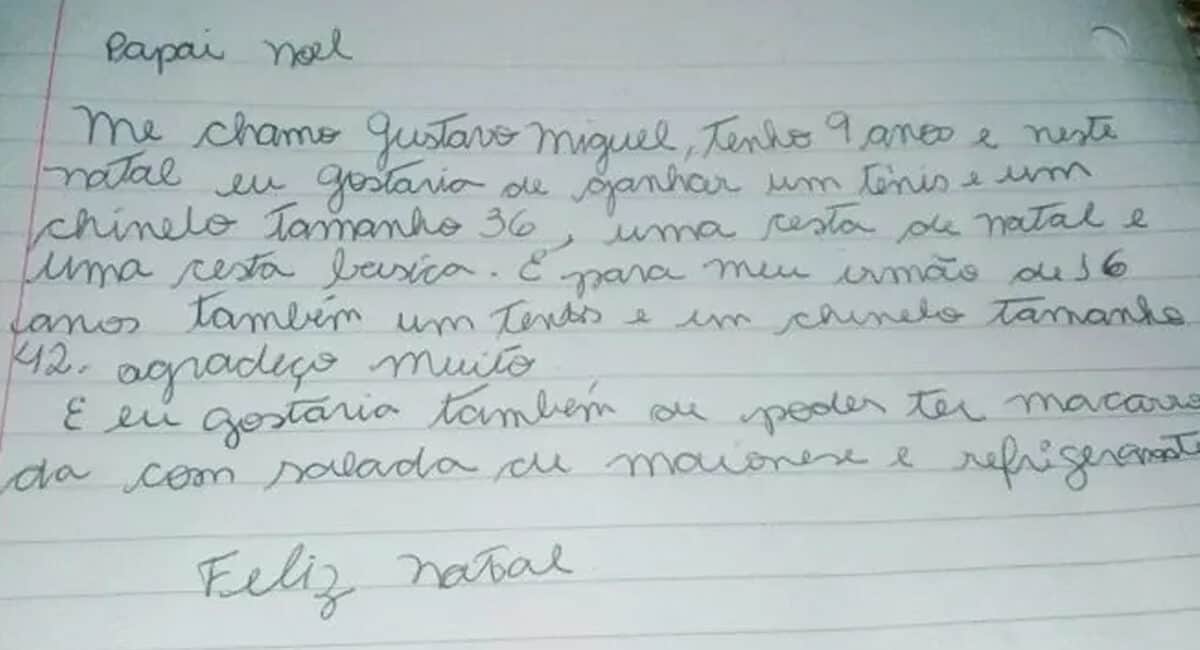 Papai noel
Me chamo Gustavo Miguel, tenho 9 anos e neste
natal eu gostaria de ganhar um tênis e um
chinelo tamanho 36, uma cesta de natal e
uma cesta basica. E para meu irmão de 16
anos também um tenis e um chinelo tamanho
42. agradeço muito
E eu gostaria também de poder ter macarro
da com salada de maionese e refrigerante
Feliz natal